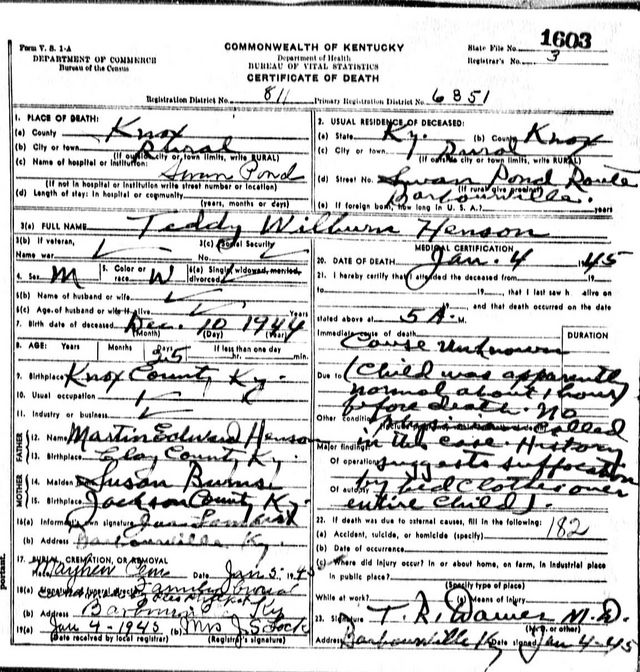 1603
Form V. S. 1-A
COMMONWEALTH OF KENTUCKY
State File No.
DEPARTMENT OF COMMERCE
Department of Health
Registrar's No. 3
Bureau of the Census
BUREAU OF VITAL STATISTICS
CERTIFICATE OF DEATH
Registration District No. 811 Primary Registration District No. 6351
1. PLACE OF DEATH:
(a) County Knox
(b) City or town Rural
(If outside city or town limits, write RURAL)
(c) Name of hospital or institution:
Swan Pond
(If not in hospital or institution write street number or location)
(d) Length of stay: In hospital or community
(years, months or days)
2. USUAL RESIDENCE OF DECEASED:
(a) State Ky. (b) County Knox
(c) City or town Rural
(If outside city or town limits, write RURAL)
(d) Street No. Swan Pond Route
(If rural give precinct)
Barbourville.
(e) If foreign born, how long in U. S. A.? years
3(a) FULL NAME Teddy Wilburn Henson
3(b) If veteran,
Name war
3(c) Social Security
No.
4. Sex M
5. Color or race W
6(a) Single, widowed, married, divorced
6(b) Name of husband or wife
6(c) Age of husband or wife if alive Years
7. Birth date of deceased Dec. 10 1944
(Month) (Day) (Year)
8. AGE: Years Months Days If less than one day
25 hr. min.
9. Birthplace Knox County, Ky.
10. Usual occupation
11. Industry or business
FATHER
12. Name Martin Edward Henson
13. Birthplace Clay County, Ky.
MOTHER
14. Maiden Susan Burns
15. Birthplace Jackson County, Ky.
16(a) Informant's own signature
(b) Address Barbourville, Ky.
17. BURIAL, CREMATION, OR REMOVAL
Date Jan 5. 1945
(b) Address
19(a) Jan 4-1945 (b) Mrs J S Lock
(Date received by local registrar) (Registrar's signature)
MEDICAL CERTIFICATION
20. DATE OF DEATH Jan. 4 45
21. I hereby certify that I attended the deceased from 19
to 19 , that I last saw h alive on
19 , and that death occurred on the date
stated above at 5 A. M.
Immediate cause of death DURATION
Cause unknown
Due to (Child was apparently
normal about 1 hour
before death. No
Other conditions called
in the case. History
Major findings:
Of operations suggests suffocation
by bed clothes over
Of autopsy
entire child).
22. If death was due to external causes, fill in the following: 182
(a) Accident, suicide, or homicide (specify)
(b) Date of occurrence
(c) Where did injury occur? In or about home, on farm, in industrial place
in public place?
(Specify type of place)
While at work? (e) Means of injury
23. Signature M.D.
(M.D. or other)
Address Barbourville, Ky Date signed Jan 4-45
portant.